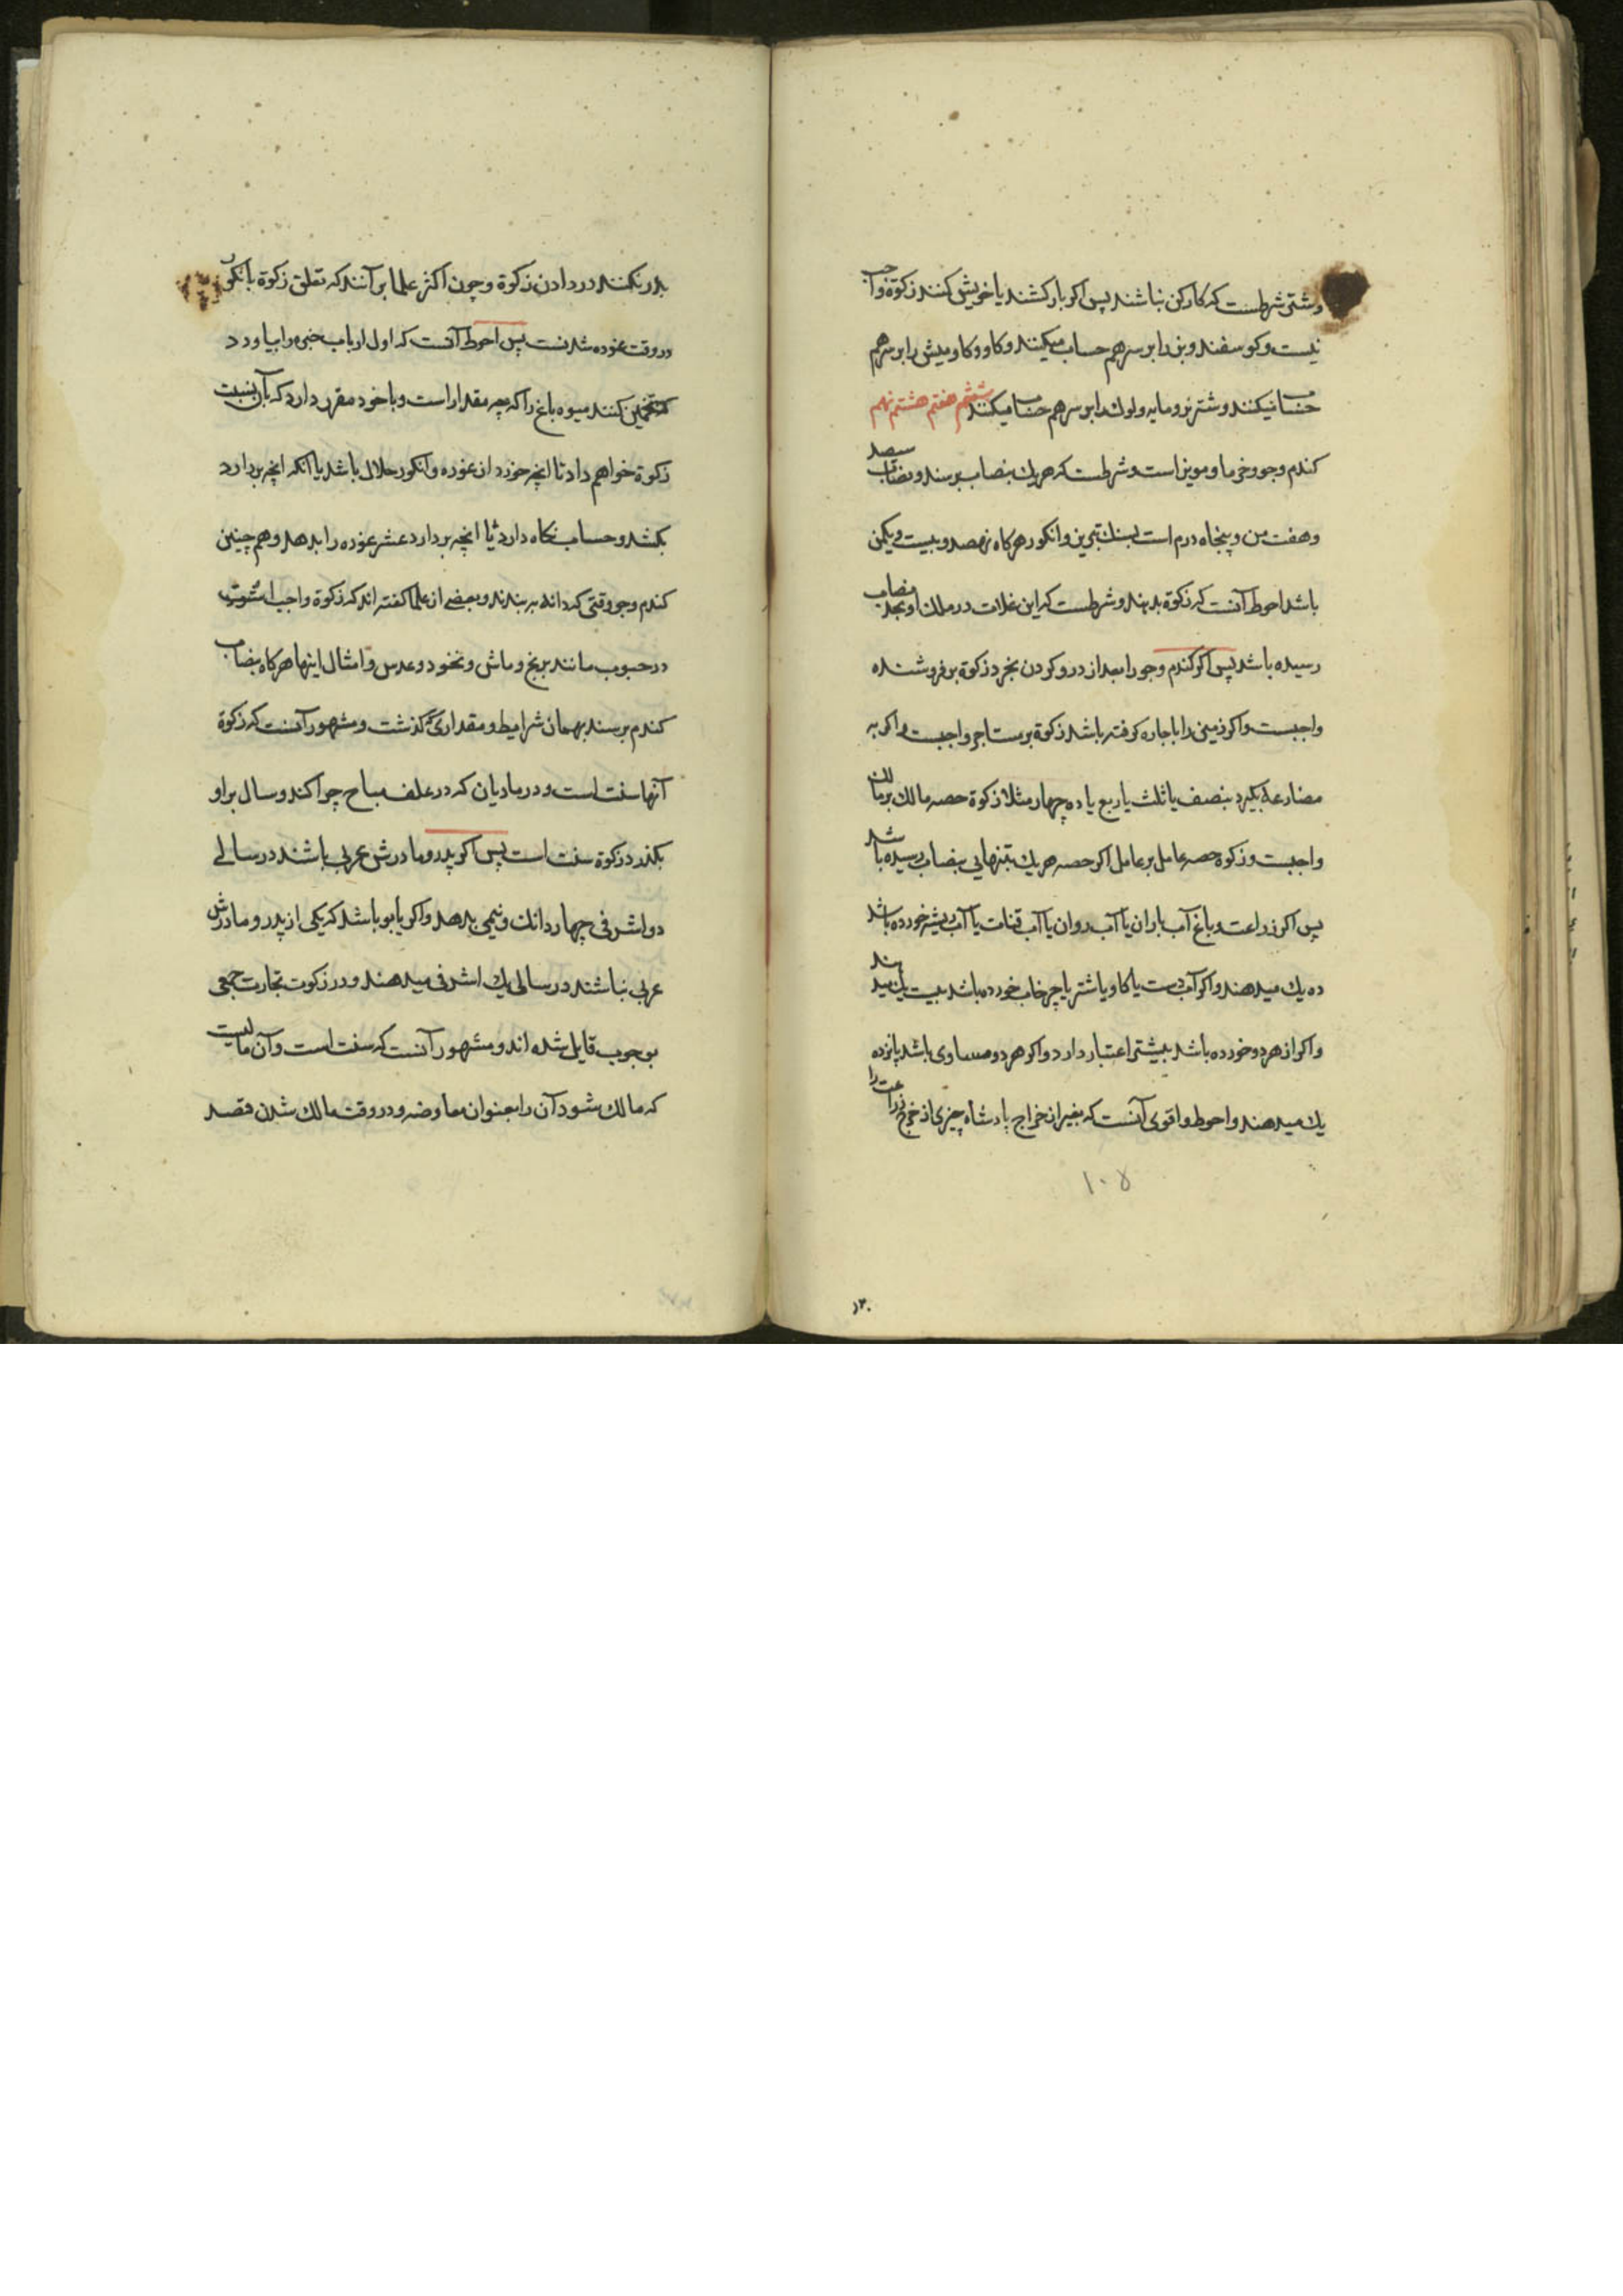 و شتر شرطست که کارکن نباشند پس اکر بارکشند یا خویش کنند زکوة واجب
نیست و کوسفند و بز را بر سر هم حساب میکنند و کاو و کاومیش را بر سر هم
حساب میکنند و شتر نر و مایه و لوک را بر سر هم حساب میکنند ششم هفتم هشتم نهم
کندم و جو و خرما و مویز است و شرطست که هر یک بنصاب برسند و نصاب سیصد
و هفت من و پنجاه درم است بسنک تبریز و انکور هرکاه نهصد و بیست و یکمن
باشد احوط آنست که زکوة بدهند و شرطست که این غلات در ملک او بحد نصاب
رسیده باشد پس اکر کندم و جو را بعد از درو کردن بخرد زکوة بر فروشنده
واجبست و اکر زمینی را باجاره کرفته باشد زکوة بر مستاجر واجبست و اکر به
مضارعه بکیرد بنصف یا ثلث یا ربع یا ده چهار مثلا زکوة حصه مالک بر مالک
واجبست و زکوة حصه عامل بر عامل اکر حصه هر یک بتنهایی بنصاب رسیده باشد
پس اکر زراعت و باغ آب باران یا آب روان یا آب قنات یا آب بیشتر خورده باشد
ده یک میدهند و اکر آب دست یا کاو یا شتر یا چرخاب خورده باشد بیست یک میدهند
و اکر از هر دو خورده باشد بیشتر اعتبار دارد و اکر هر دو مساوی باشد پانزده
یک میدهند و احوط و اقوی آنست که بغیر از خراج پادشاه چیزی از خرج زراعت را
۱۰۸
۱۲۰
بدر نکنند در دادن زکوة و چون اکثر علما بر آنند که تعلق زکوة بانکور
در وقت غوره شدنست پس احوط آنست که اول ارباب خبره را بیاورد
تخمین کنند میوه باغ را که چه مقدار است و با خود مقرر دارد که بآن نسبت
زکوة خواهم داد تا انچه خورد از غوره و انکور حلال باشد یا انکه انچه بردارد
بکشد و حساب نکاه دارد تا انچه بردارد عشر غوره را بدهد و هم چنین
کندم و جو وقتی که دانه بر بندند و بعضی از علما کفته اند که زکوة واجب است
در حبوب مانند برنج و ماش و نخود و عدس و امثال اینها هرکاه بنصاب
کندم برسند بهمان شرایط و مقداری که کذشت و مشهور آنست که زکوة
آنها سنت است و در مادیان که در علف مباح چرا کند و سال بر او
بکذرد زکوة سنت است پس اکر پدر و مادرش عربی باشند در سالی
دو اشرفی چهار دانک و نیمی بدهد و اکر یابو باشد که یکی از پدر و مادرش
عربی نباشند در سالی یک اشرفی میدهند و در زکوت تجارت جمعی
بوجوب قایل شده اند و مشهور آنست که سنت است و آن مالیست
که مالک شود آن را بعنوان معاوضه و در وقت مالک شدن قصد